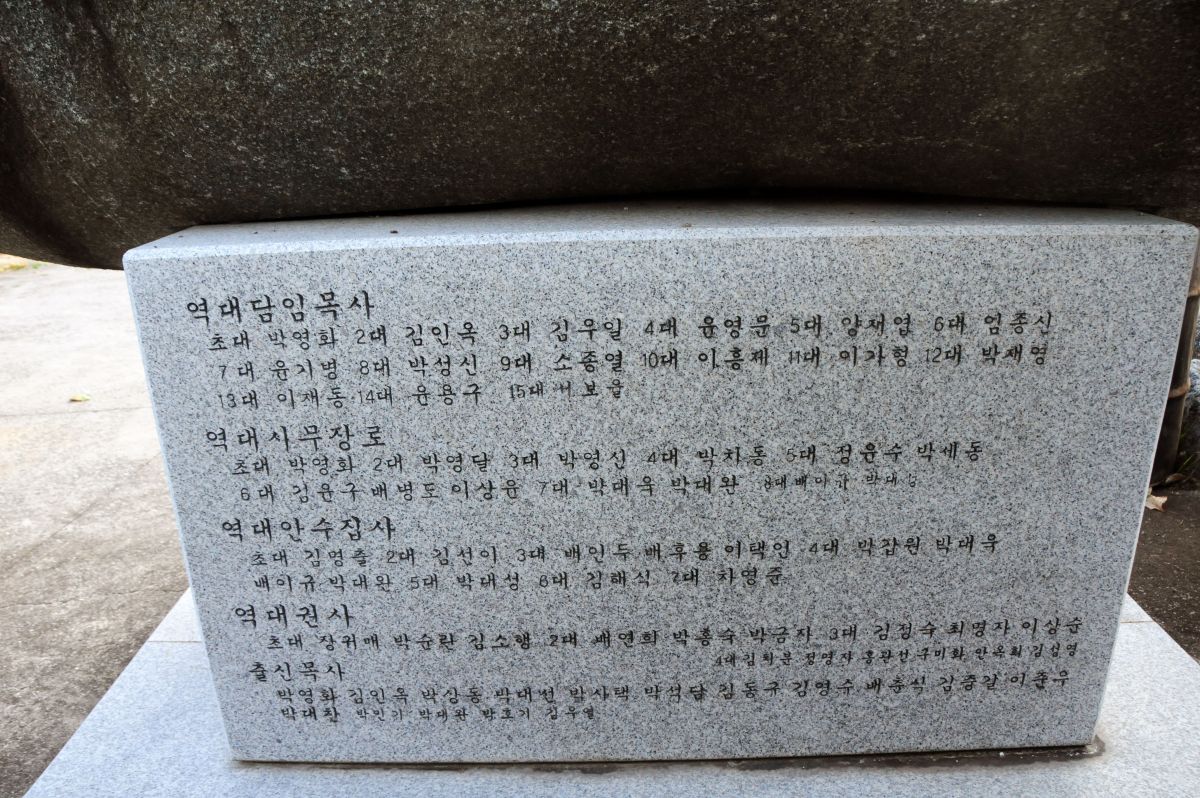 역대담임목사
초대 박영화 2대 김인옥 3대 김우일 4대 윤영문 5대 양재엽 6대 엄종신
7대 윤기병 8대 박성신 9대 소종열 10대 이흥제 11대 이가형 12대 박재영
13대 이재동 14대 윤용구 15대 서보율
역대시무장로
초대 박영화 2대 박영달 3대 박영신 4대 박치동 5대 정윤수 박세동
6대 김윤구 배병도 이상윤 7대 박대욱 박대완 8대 배이규
역대안수집사
초대 김명출 2대 김선이 3대 배인두 배후용 이택언 4대 박잡원 박대욱
배이규 박대완 5대 박대성 6대 김해식 7대 차영준
역대권사
초대 장귀매 박순란 김소행 2대 배연희 박홍수 박금자 3대 김정숙 최명자 이상순
4대 김희분 정영자 홍관선 구미화 안옥희 김섭영
출신목사
박영화 김인옥 박상동 박대선 박사택 박석달 김동규 김영수 배춘식 김증갈 이준우
박대찬 박대완 박호기 김우열